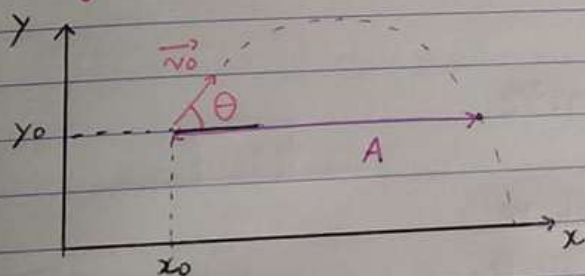 y
v0
θ
y0
A
x
x0